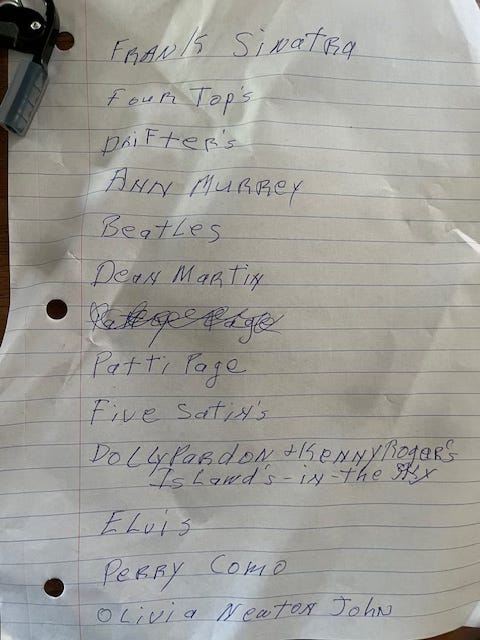 Frank Sinatra
Four Top's
Drifter's
Ann Murrey
Beatles
Dean Martin
Patti Page
Five Satin's
Dolly Pardon + Kenny Roger's
Island's-in-the Sky
Elvis
Perry Como
Olivia Newton John